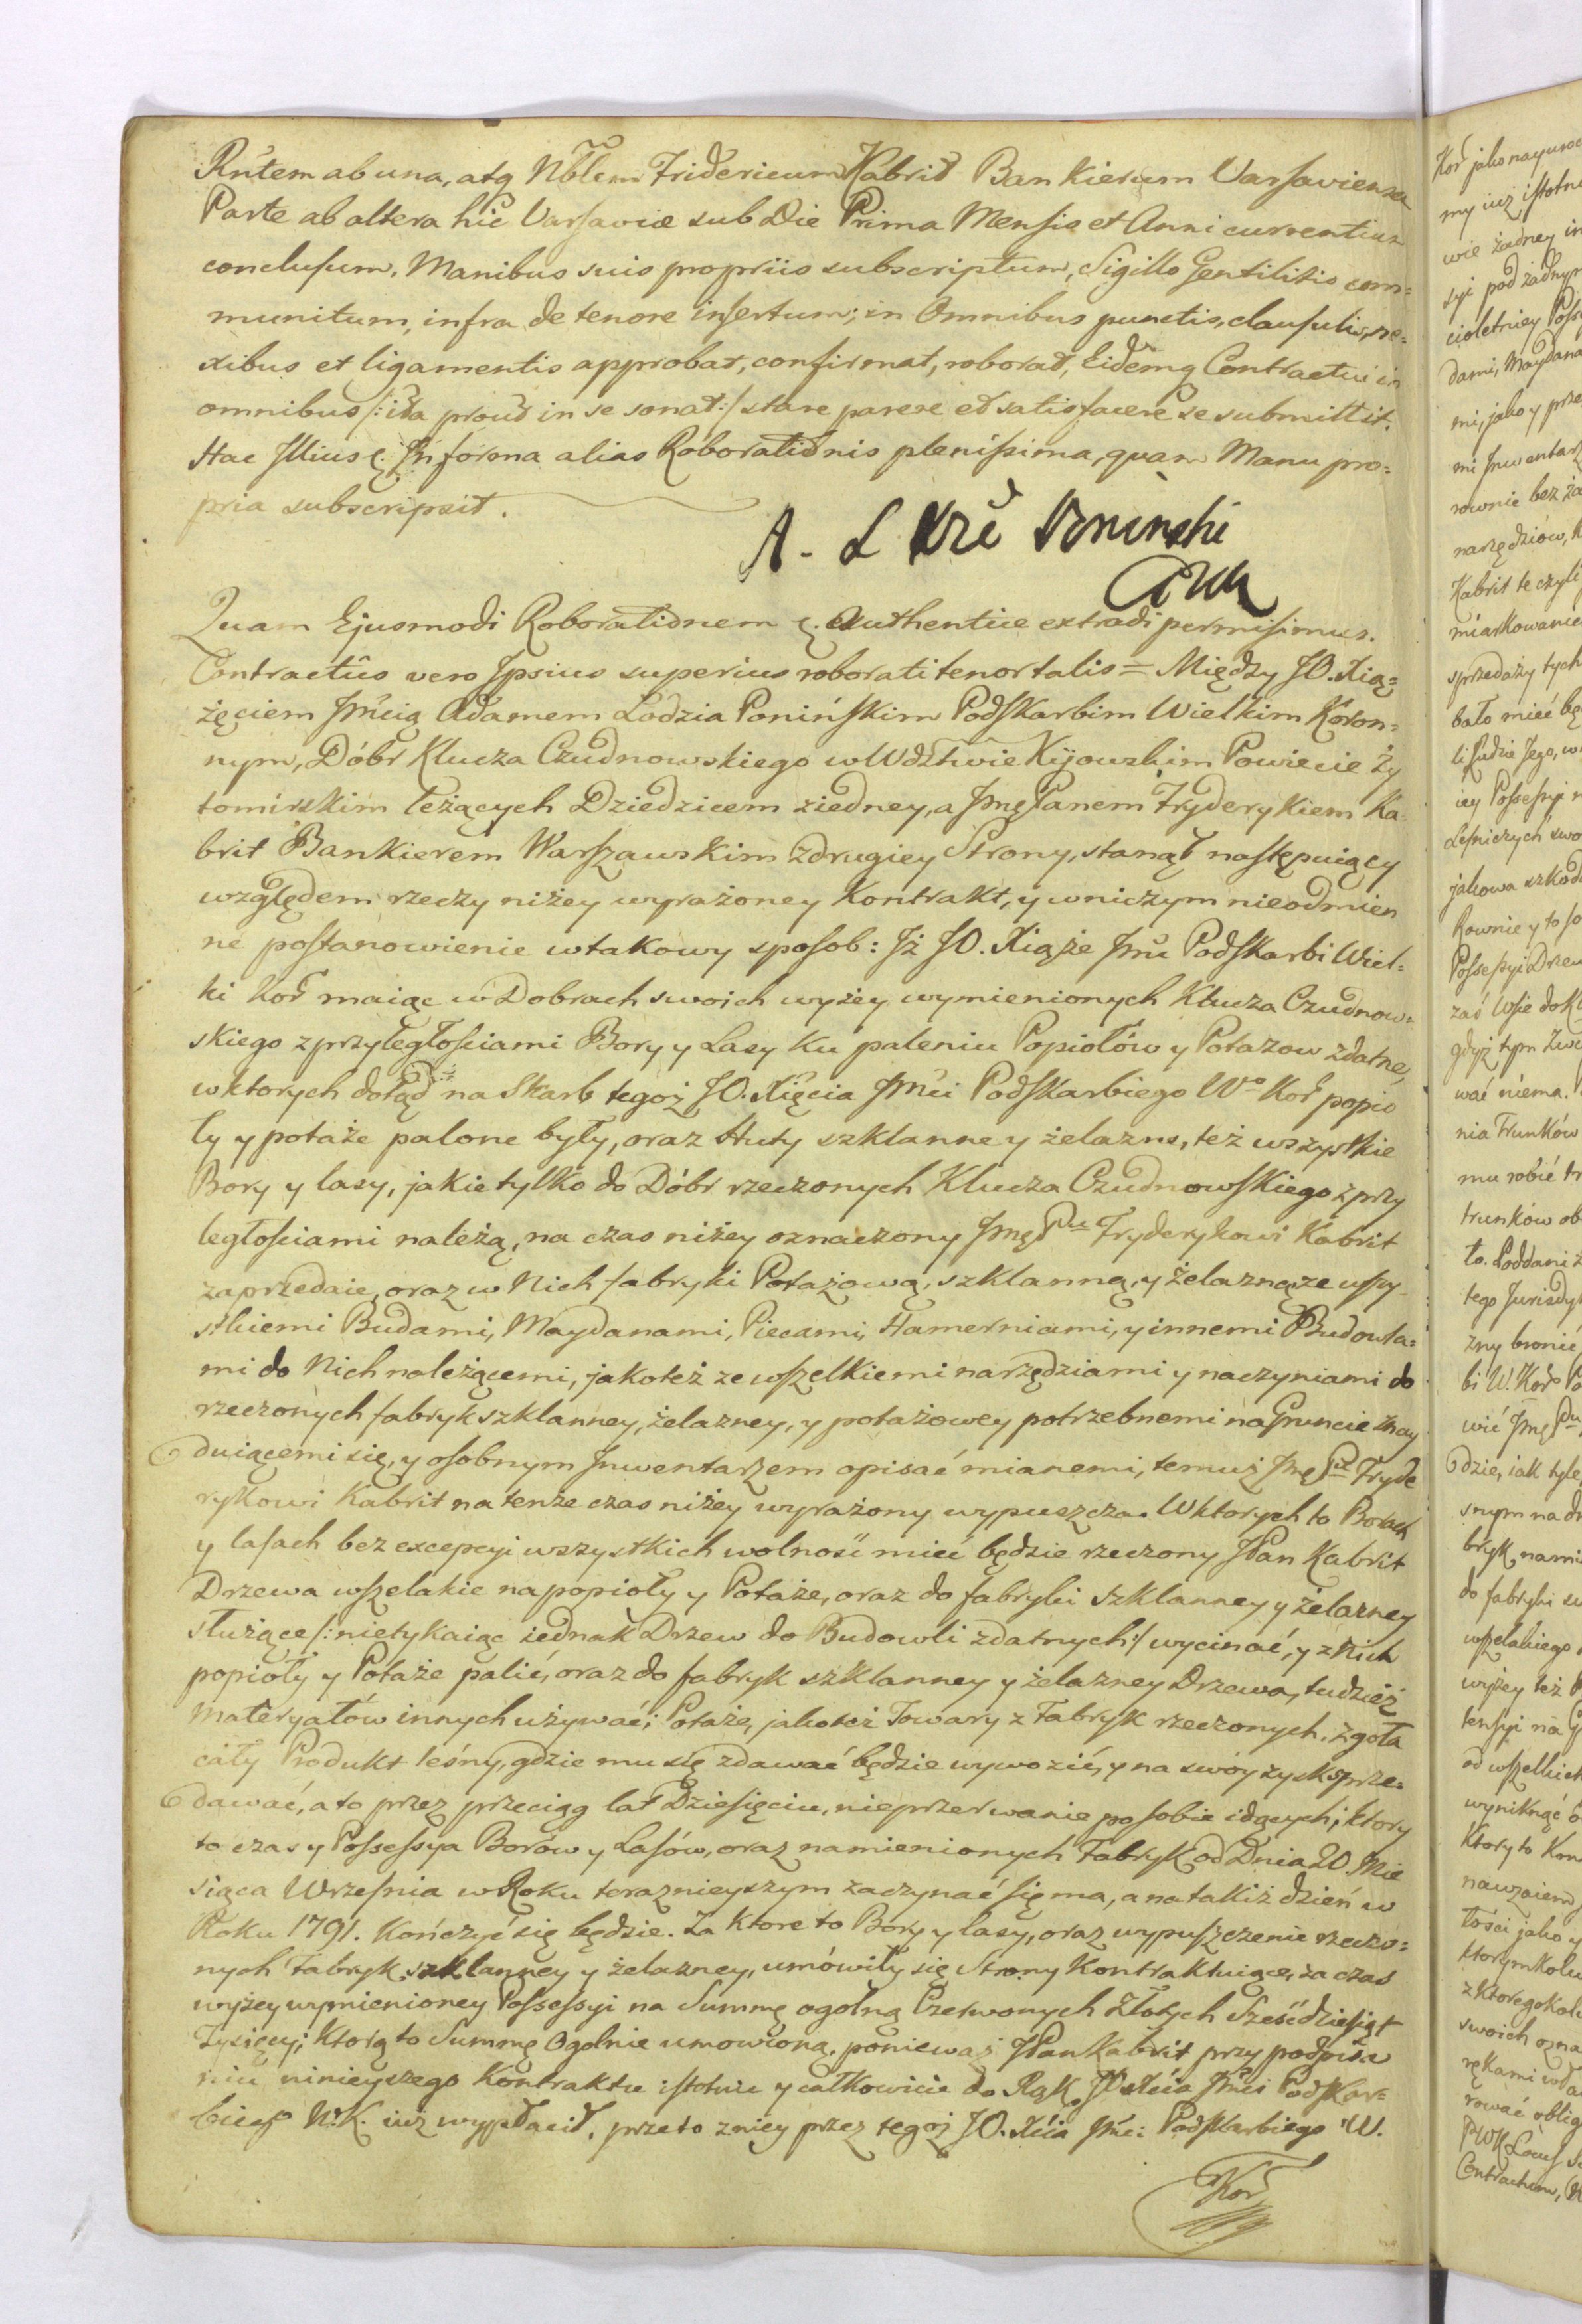 Rntem ab una, atq Nblem Fridericum Kabrit Bankierum Varsaviensem
Parte ab altera hic Varsaviæ sub Die Prima Mensis et Anni currentium
conclusum, Manibus suis propriis subscriptum, Sigillo Gentilitio com=
munitum, infra de tenore insertum; in Omnibus punctis, clausulis, ne=
xibus et ligamentis approbat, confirmat, roborat, Eidemq Contractui in
omnibus /: ita prout in se sonat :/ stare parere et satisfacere se submittit.
Hac Illius In forma alias Roborationis plenissima, quam Manu pro=
pria subscripsit.
A. L Xże Poninski
Quam Ejusmodi Roborationem authentice extradi permisimus.
Contractûs vero Ipsius superius roborati tenor talis = Między JO. Xią=
żęciem Jmcią Adamem Lodzia Ponińskim Podskarbim Wielkim Koron=
nym, Dóbr Klucza Czudnowskiego w Wdztwie Kijowskim Powiecie Ży
tomirskim leżących Dziedzicem z iedney, a Jmę Panem Fryderykiem Ka
brit Bankierem Warszawskim z drugiey Strony, stanął następuiący
względem rzeczy niżey wyrażoney Kontrakt, y w niczym nieodmien
ne postanowienie w takowy sposob: Iż JO. Xiąże Jmć Podskarbi Wiel=
ki Kor maiąc w Dobrach swoich wyżey wymienionych Klucza Czudnow=
skiego z przyległościami Bory y Lasy ku paleniu Popiołów y Potazow zdatne,
w ktorych dotąd na Skarb tegoż JO. Xięcia Jmci Podskarbiego Wo Kor popio
ły y potaże palone były, oraz Huty szklanne y żelazne, też wszystkie
Bory y lasy, jakie tylko do Dóbr rzeczonych Klucza Czudnowskiego z przy
ległościami należą, na czas niżey oznaczony Jmę Pu Fryderykowi Kabrit
zaprzedaie, oraz w Nich fabryki Potażową, szklanną, y żelazną, ze wszy
stkiemi Budami, Maydanami, Piecami, Hamerniami, y innemi Budowla=
mi do Nich należącemi, jakoteż ze wszelkiemi narzędziami y naczyniami do
rzeczonych fabryk szklanney, żelazney, y potażowey potrzebnemi na Gruncie znay
duiącemi się, y osobnym Inwentarzem opisać mianemi, temuż Jmę Pu Fryde
rykowi Kabrit na tenże czas niżey wyrażony wypuszcza. W ktorych to Borach
y lasach bez excepcyi wszystkich wolność mieć będzie rzeczony JPan Kabrit
Drzewa wszelakie na popioły y Potaże, oraz do fabryki szklanney y żelazney
służące /: nietykaiąc iednak Drzew do Budowli zdatnych :/ wycinać, y z Nich
popioły y Potaże palić, oraz do fabryk szklanney y żelazney Drzewa, tudzież
Materyałów innych używać; Potaże, jakoteż Towary z Fabryk rzeczonych. zgoła
cały Produkt leśny, gdzie mu się zdawać będzie wywozić, y na swóy zysk sprze=
dawać, a to przez przeciąg lat Dziesięciu, nieprzerwanie po sobie idących; ktory
to czas y Possessya Borów y Lasów, oraz namienionych Fabryk od Dnia 20. Mie
siąca Wrzesnia w Roku teraznieyszym zaczynać się ma, a na takiż dzień w
Roku 1791. Kończyć się będzie. Za ktore to Bory y lasy, oraz wypuszczenie rzeczo=
nych Fabryk szklanney y żelazney, umówiły się Strony Kontraktuiące, za czas
wyżey wymienioney Possessyi na Summę ogolną Czerwonych Złotych Sześćdziesiąt
Tysięcy; Ktorą to Summę Ogolnie umowioną. ponieważ JPan Kabrit przy podpisa
niu ninieyszego Kontraktu istotnie y całkowicie do Rąk JO. Xcia Jmci Podskar=
biego W. K. iuż wypłacił, przeto z niey przez tegoż JO. Xcia Jmci Podskarbiego W.
Kor